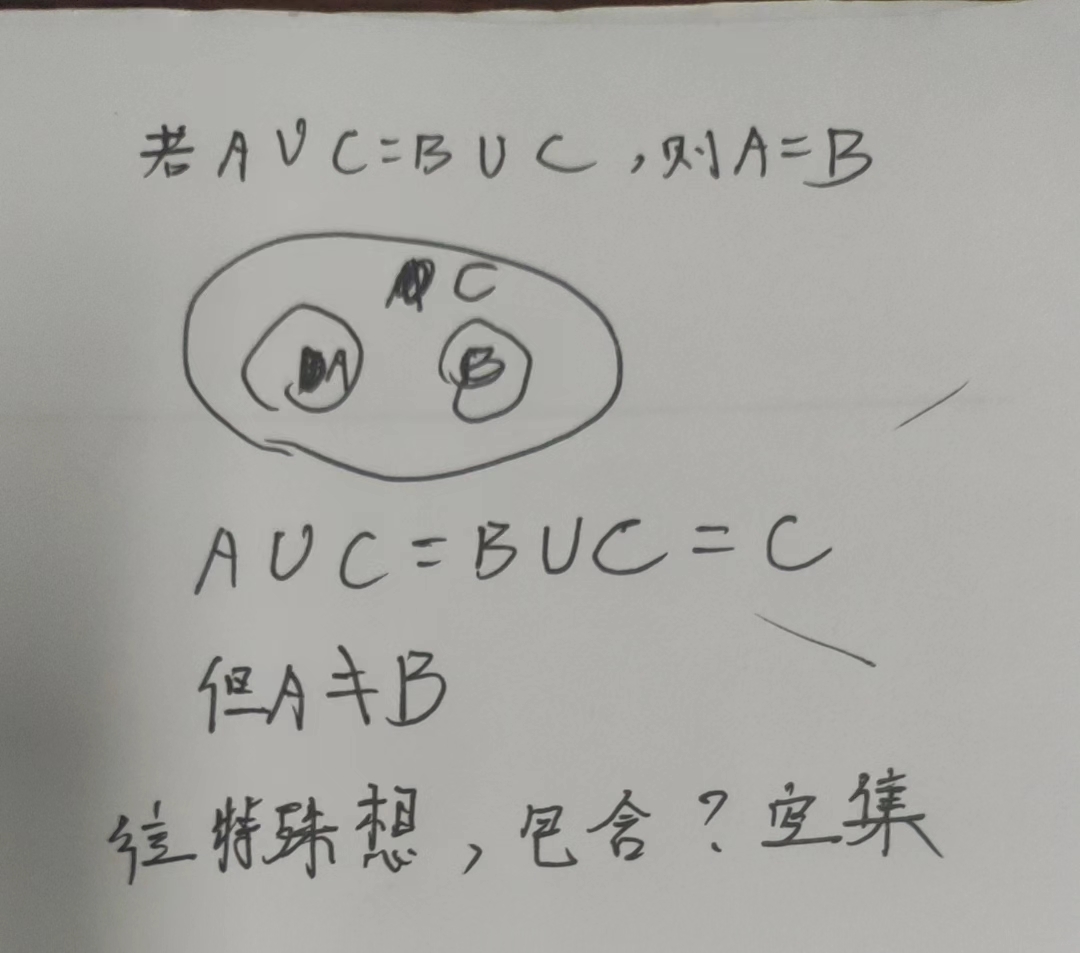 若A∪C=B∪C,则A=B
C
A B
A∪C=B∪C=C
但A≠B
往特殊想,包含?空集